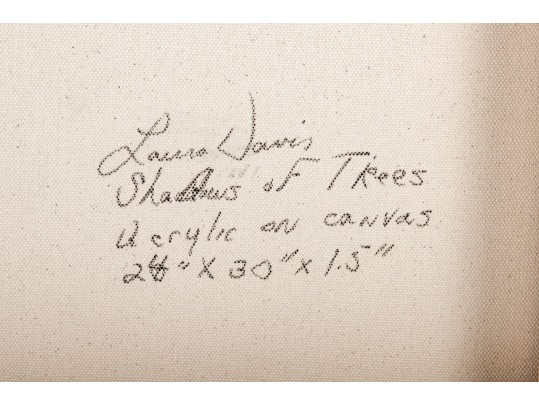 Laura Davis
Shadows of Trees
Acrylic on canvas
" X 30" x 1.5"